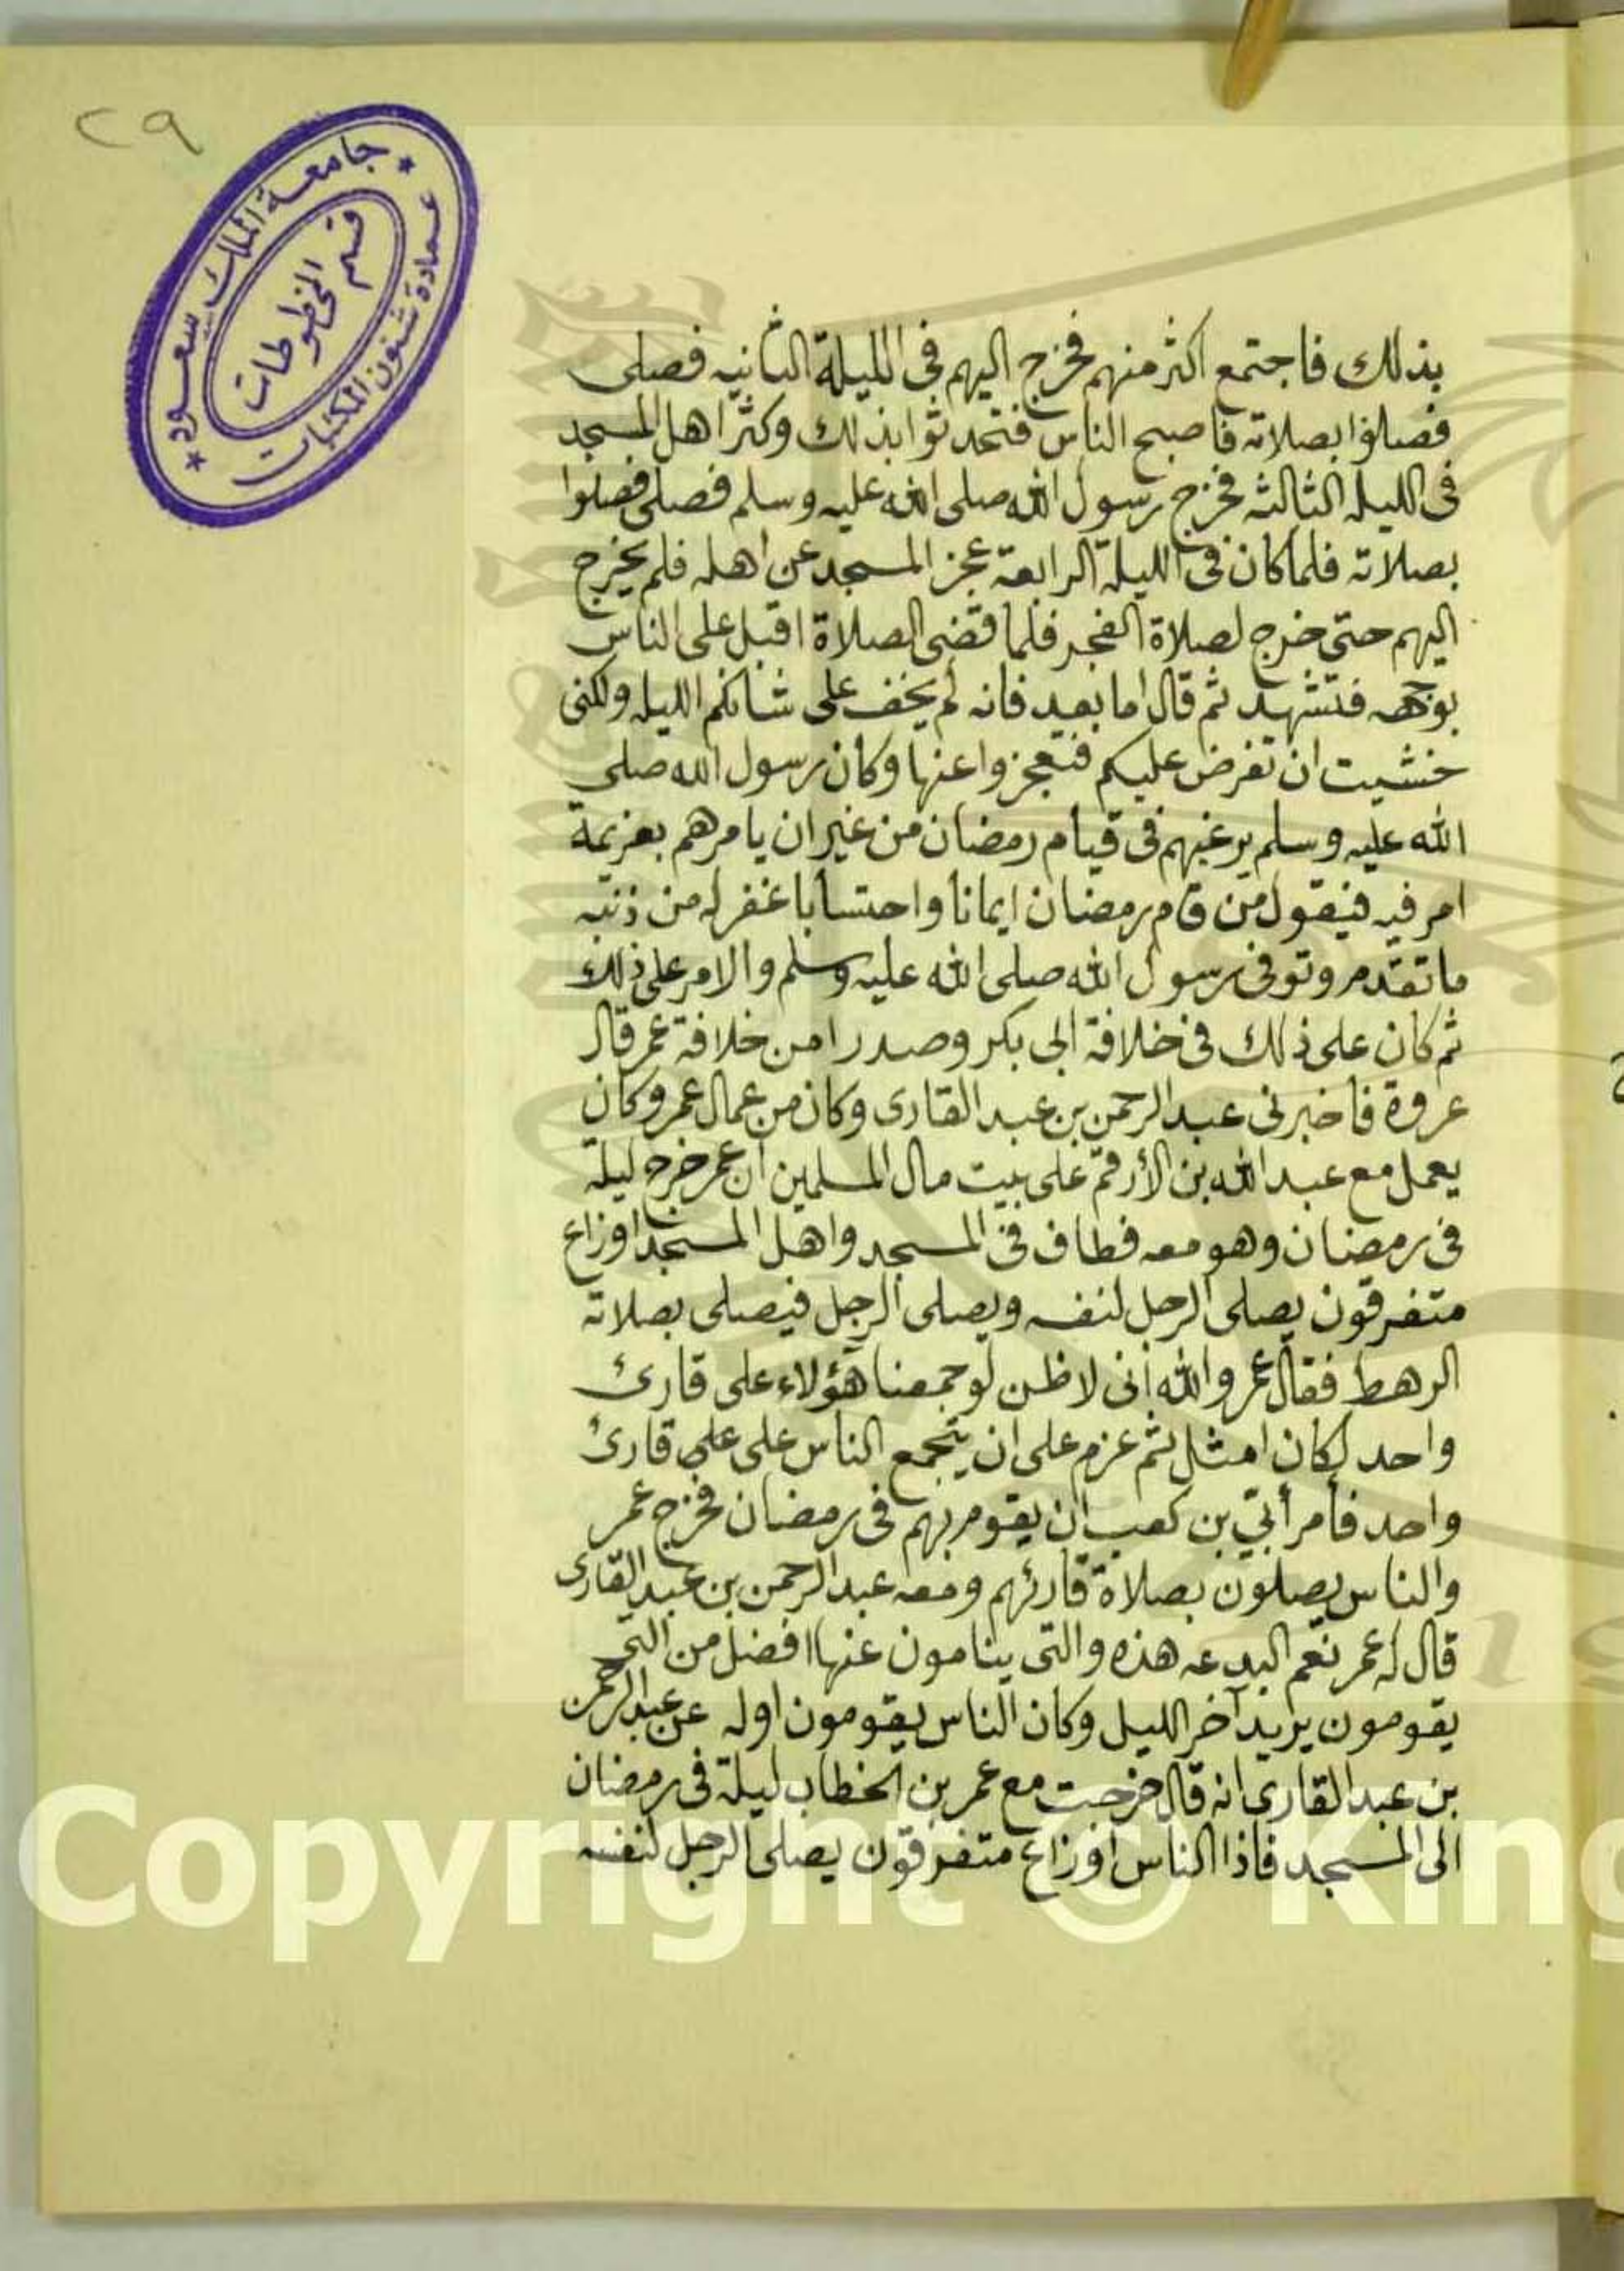 ٢٩
جامعة الملك سعود
عمادة شئون المكتبات
قسم المخطوطات
بذلك فاجتمع اكثر منهم فخرج اليهم فى الليلة الثانيه فصلى
فصلوا بصلاته فاصبح الناس فتحدثوا بذلك وكثر اهل المسجد
فى الليله الثالثه فخرج رسول الله صلى الله عليه وسلم فصلى فصلوا
بصلاته فلما كان فى الليلة الرابعة عجز المسجد عن اهله فلم يخرج
اليهم حتى خرج لصلاة الفجر فلما قضى الصلاة اقبل على الناس
بوجهه فتشهد ثم قال اما بعد فانه لم يخف على شانكم الليله ولكنى
خشيت ان تفرض عليكم فتعجزوا عنها وكان رسول الله صلى
الله عليه وسلم يرغبهم فى قيام رمضان من غير ان يامرهم بعزيمة
امر فيه فيقول من قام رمضان ايمانا واحتسابا غفر له من ذنبه
ما تقدم وتوفى رسول الله صلى الله عليه وسلم والامر على ذلك
ثم كان على ذلك فى خلافة ابى بكر وصدرا من خلافة عمر قال
عروة فاخبرنى عبد الرحمن بن عبد القارى وكان من عمال عمر وكان
يعمل مع عبد الله بن الأرقم على بيت مال المسلمين ان عمر خرج ليلة
فى رمضان وهو معه فطاف فى المسجد واهل المسجد اوزاع
متفرقون يصلى الرجل لنفسه ويصلى الرجل فيصلى بصلاته
الرهط فقال عمر والله انى لاظن لو جمعنا هؤلاء على قارئ
واحد لكان امثل ثم عزم على ان يجمع الناس على على قارئ
واحد فأمر أبيّ بن كعب ان يقوم بهم فى رمضان فخرج عمر
والناس يصلون بصلاة قارئهم ومعه عبد الرحمن بن عبد القارى
قال له عمر نعم البدعه هذه والتى ينامون عنها افضل من التى
يقومون يريد آخر الليل وكان الناس يقومون اوله عن عبد الرحمن
بن عبد القارى انه قال خرجت مع عمر بن الخطاب ليلة فى رمضان
الى المسجد فاذا الناس اوزاع متفرقون يصلى الرجل لنفسه
Copyright © King